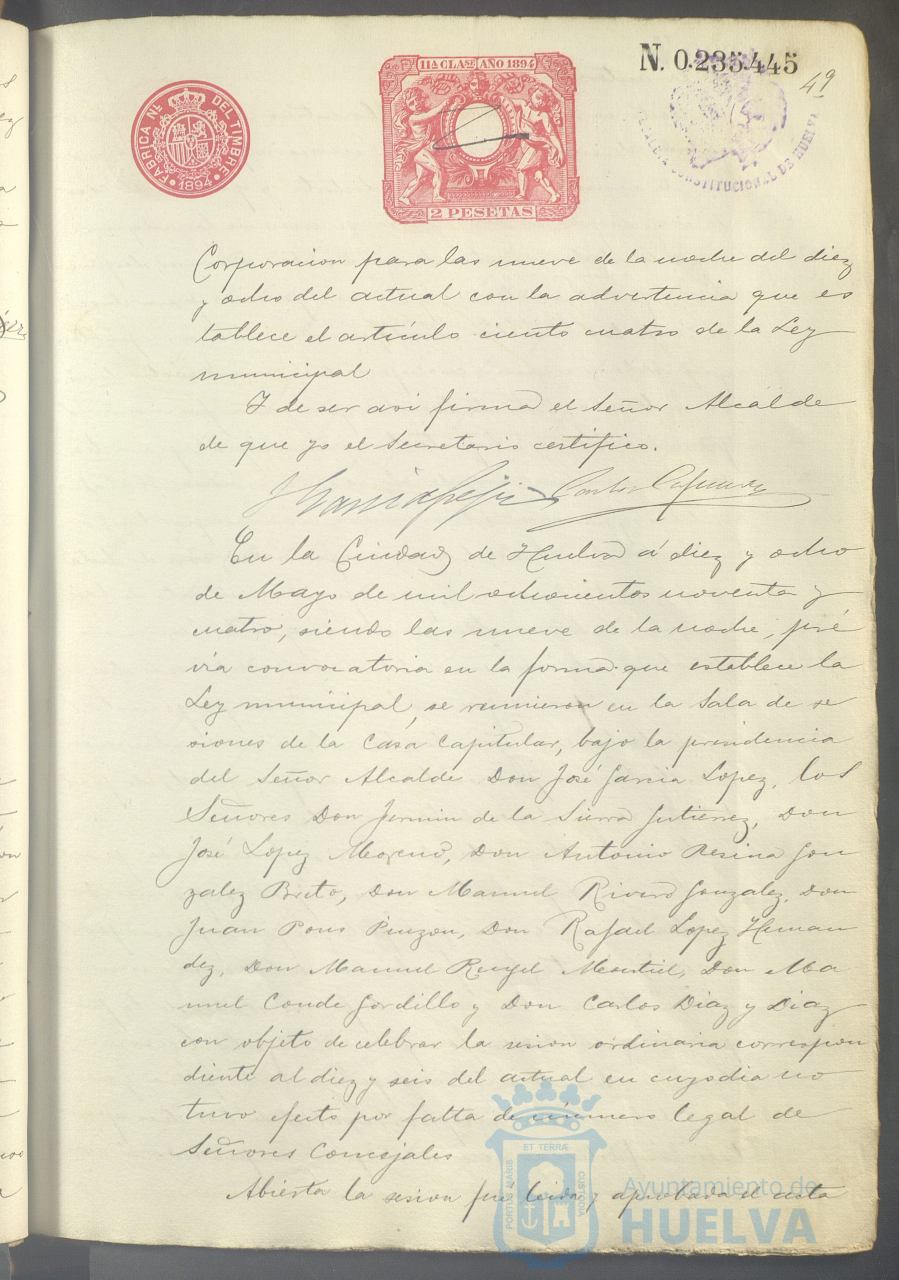 11ª CLASE AÑO 1894
N. 0.235.445
49
FABRICA NL. DEL TIMBRE
1894
2 PESETAS
CONSTITUCIONAL DE HUELVA
Corporacion para las nueve de la noche del diez
y ocho del actual con la advertencia que es
tablece el artículo ciento cuatro de la Ley
municipal
Y de ser asi firma el Señor Alcalde
de que yo el Secretario certifico.
En la Ciudad de Huelva á diez y ocho
de Mayo de mil ochocientos noventa y
cuatro, siendo las nueve de la noche, pré
via convocatoria en la forma que establece la
Ley municipal, se reunieron en la Sala de se
siones de la Casa Capitular, bajo la presidencia
del Señor Alcalde Don José Garcia Lopez, los
Señores Don Fermin de la Sierra Gutierrez, Don
José Lopez Moreno, Don Antonio Resina Gon
zalez Brito, Don Manuel Rivero Gonzalez, Don
Juan Pons Pinzon, Don Rafael Lopez Hernan
dez, Don Manuel Rengel Montiel, Don Ma
nuel Conde Gordillo y Don Carlos Diaz y Diaz
con objeto de celebrar la sesion ordinaria correspon
diente al diez y seis del actual en cuyo dia no
tuvo efecto por falta de número legal de
Señores Concejales
Abierta la sesion fue leida y aprobada el acta
ET TERRÆ
PORTUS MARIS
CUSTODIA
Ayuntamiento de
HUELVA